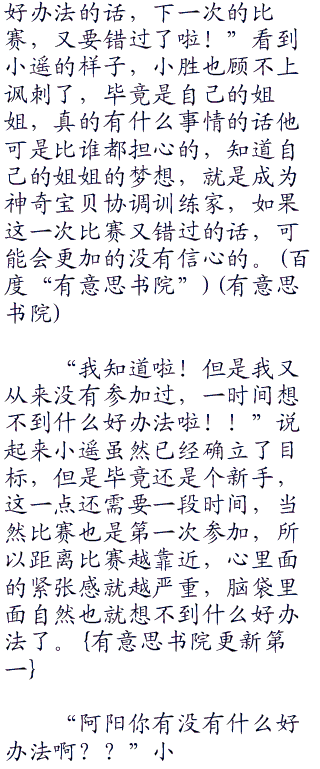 好办法的话，下一次的比
赛，又要错过了啦！”看到
小遥的样子，小胜也顾不上
讽刺了，毕竟是自己的姐
姐，真的有什么事情的话他
可是比谁都担心的，知道自
己的姐姐的梦想，就是成为
神奇宝贝协调训练家，如果
这一次比赛又错过的话，可
能会更加的没有信心的。(百
度“有意思书院”)(有意思
书院)
“我知道啦！但是我又
从来没有参加过，一时间想
不到什么好办法啦！！”说
起来小遥虽然已经确立了目
标，但是毕竟还是个新手，
这一点还需要一段时间，当
然比赛也是第一次参加，所
以距离比赛越靠近，心里面
的紧张感就越严重，脑袋里
面自然也就想不到什么好办
法了。{有意思书院更新第
一}
“阿阳你有没有什么好
办法啊？？”小